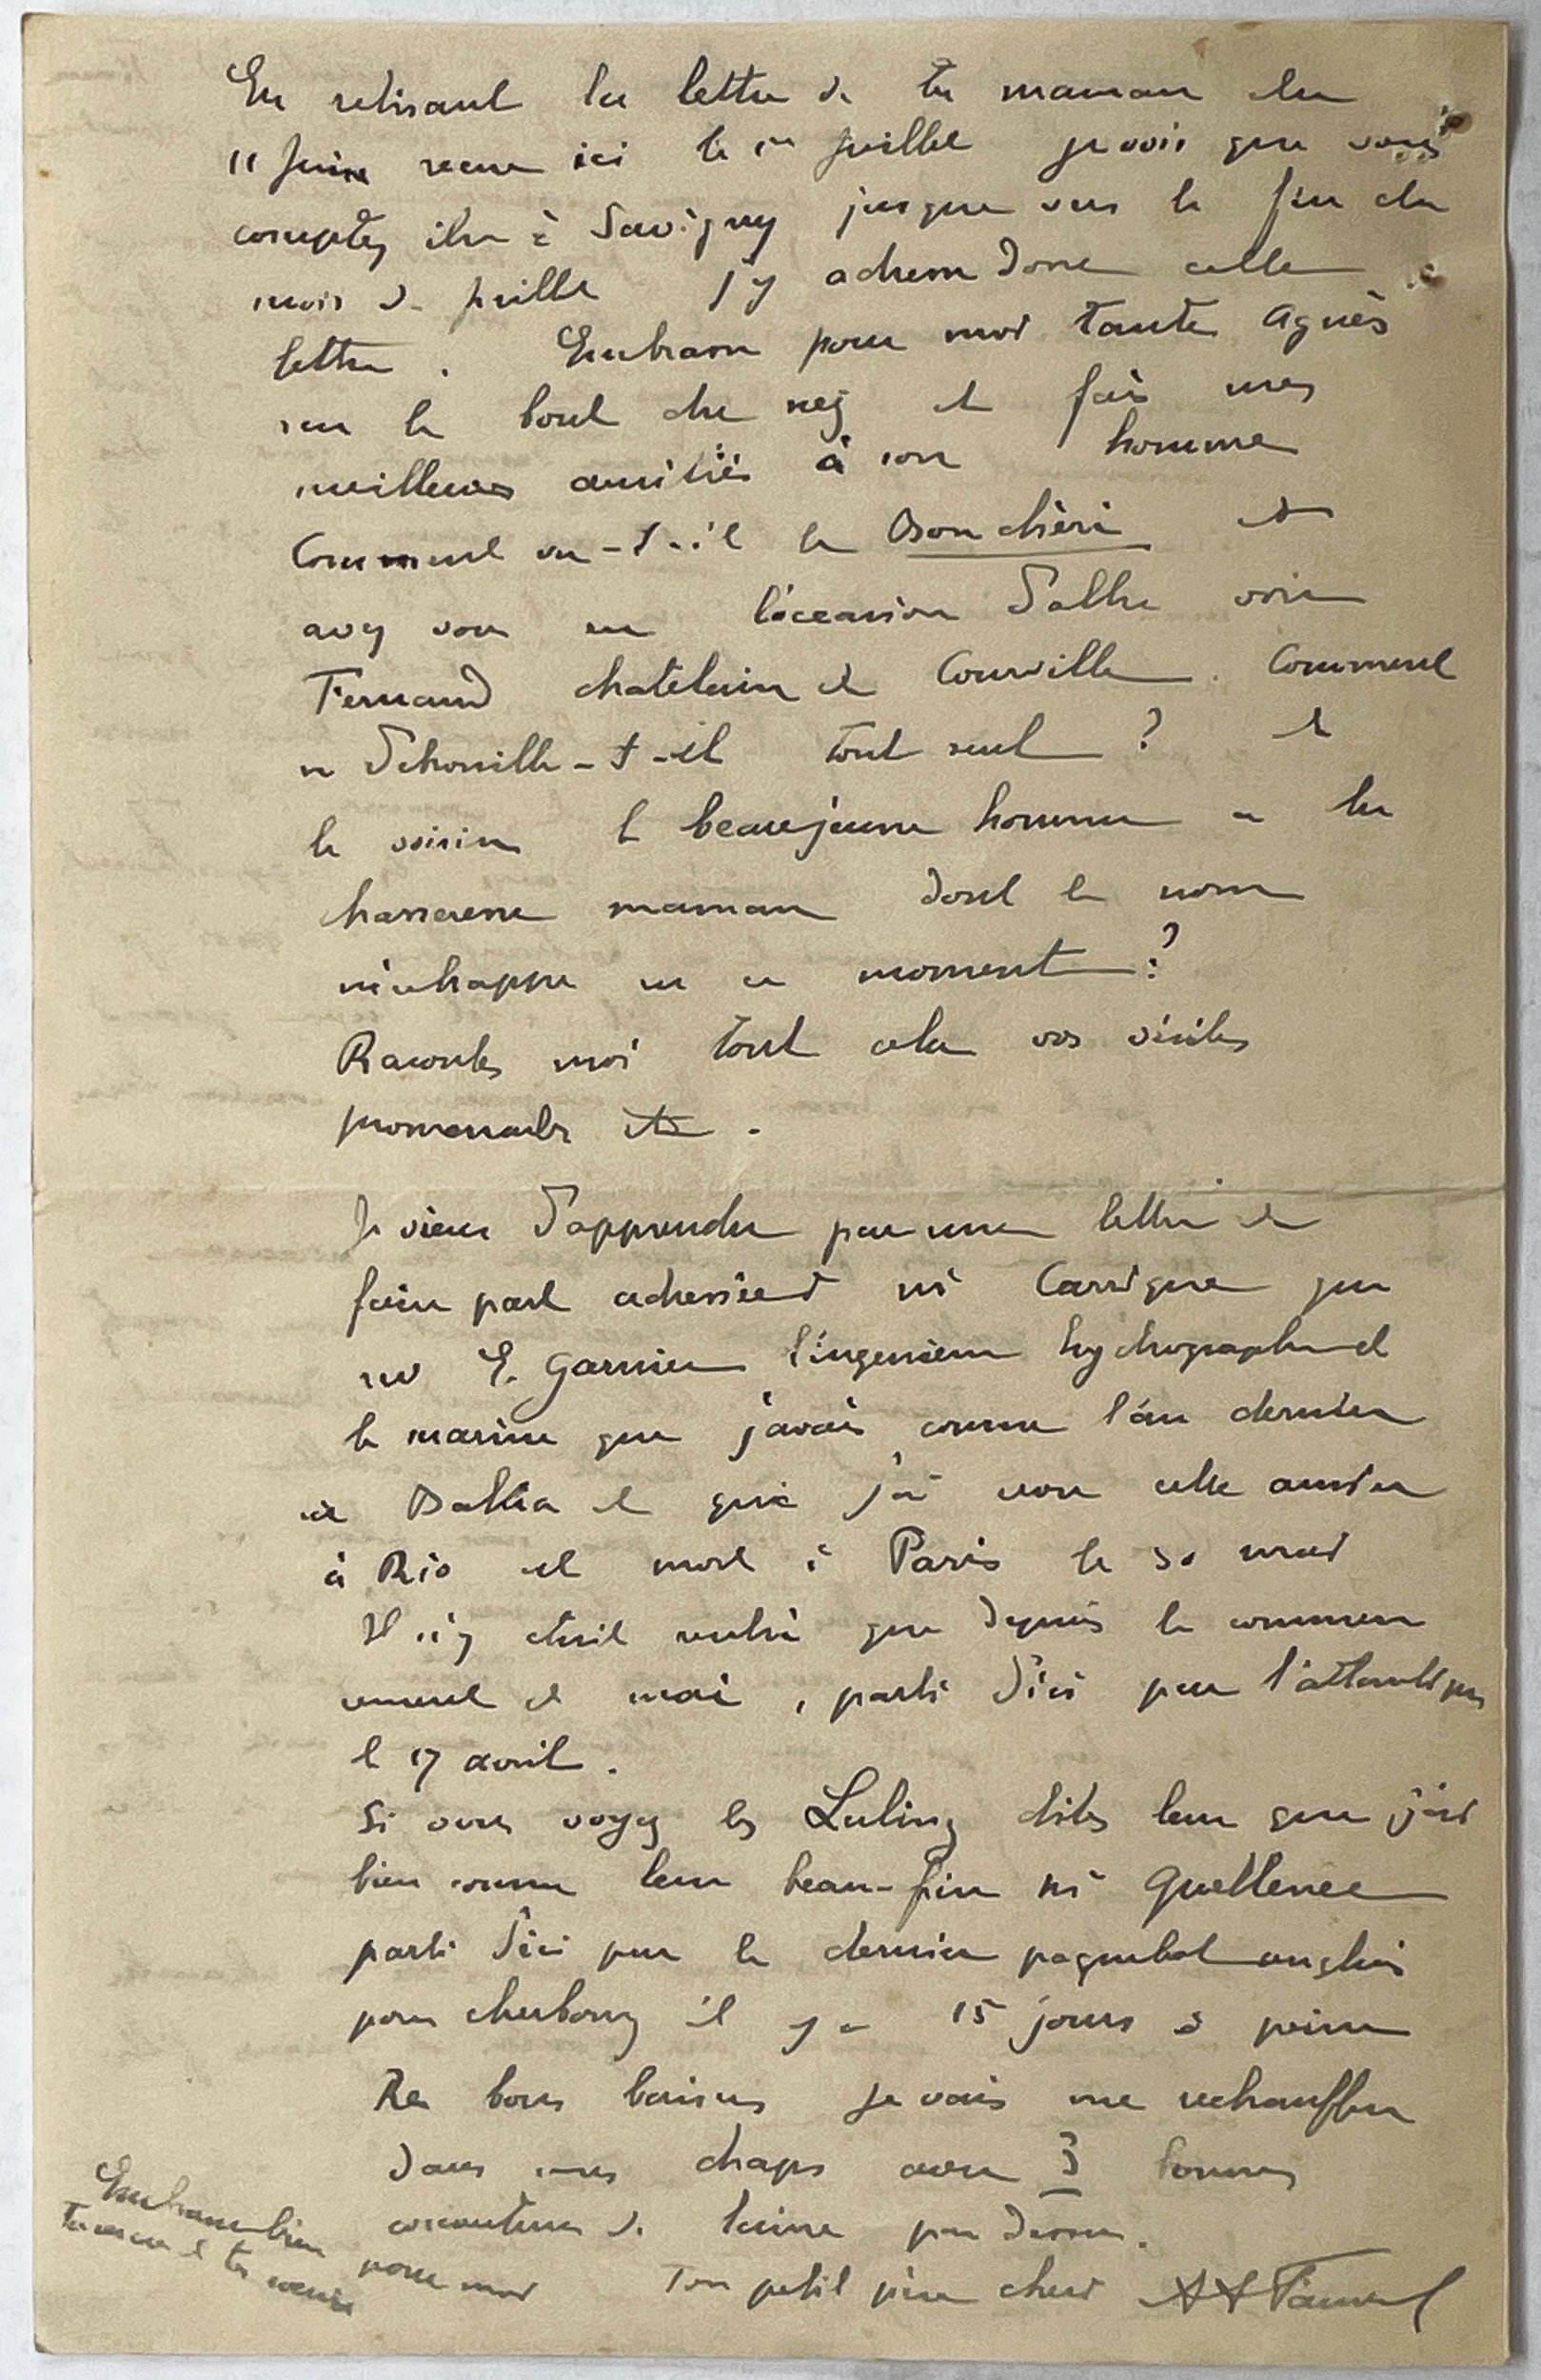 En relisant la lettre de ta maman du
11 juin reçue ici le 1er juillet je vois que vous
comptez être à Savigny jusque vers la fin du
mois de juillet j'y adresse donc cette
lettre. Embrasse pour moi tante Agnès
sur le bout du nez et fais mes
meilleures amitiés à son homme
Comment va-t-il le Bon chéri et
avez vous eu l'occasion d'aller voir
Fernand chatelain de Courville. Comment
se débrouille-t-il tout seul? et
le voisin le beau jeune homme a la
chasseresse maman dont le nom
m'échappe en ce moment?
Racontes moi tout cela vos visites
promenades etc.
Je viens d'apprendre par une lettre de
faire part adressée à Mr Carrigue que
Mr E. Garnier l'ingénieur hydrographe de
la marine que j'avais connu l'an dernier
à Bahia et que j'ai revu cette année
à Rio est mort à Paris le 30 mai
Il n'y était rentré que depuis le commen
cement de mai, parti d'ici par l'atlantique
le 17 avril.
Si vous voyez les Luling dites leur que j'ai
bien connu leur beau-frère Mr Quellenec
parti d'ici par le dernier paquebot anglais
pour cherbourg il y a 15 jours à peine
Re bons baisers je vais me rechauffer
dans mes draps avec 3 bonnes
couvertures de laine par dessus.
Ton petit père cheri Fauvel
Embrasse bien
ta mère et ta soeur
pour moi